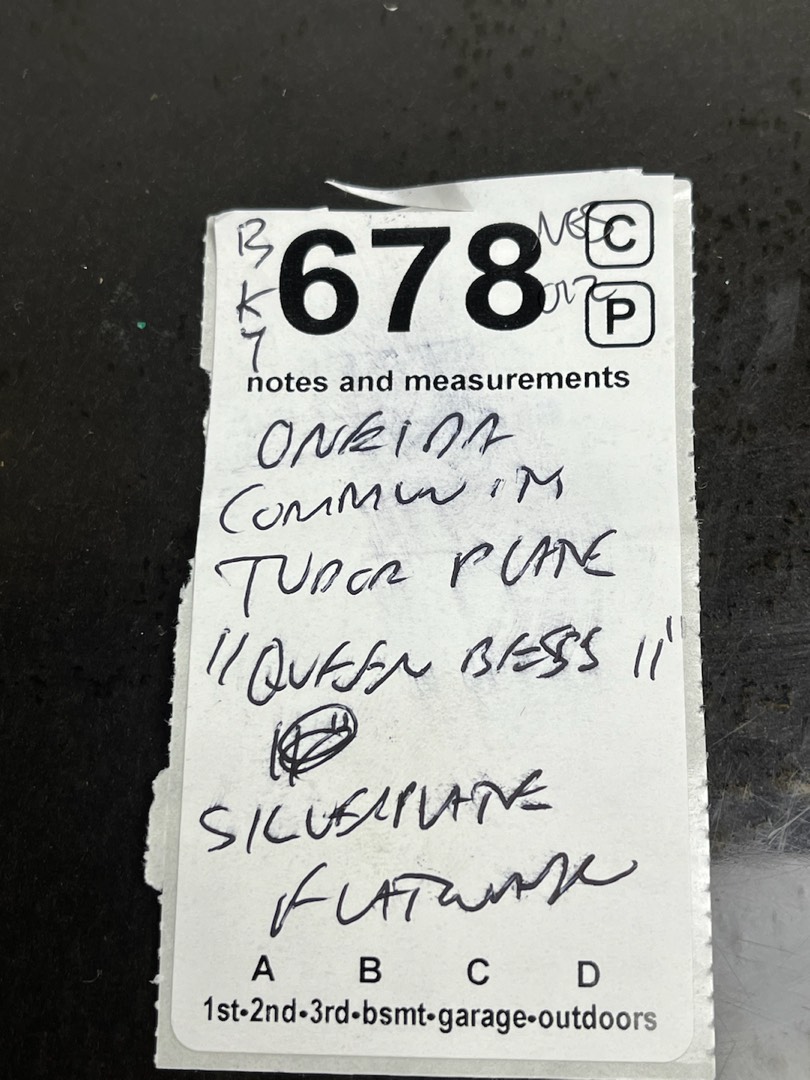 B 678 C
K P
7
notes and measurements
ONEIDA
COMMUNITY
TUDOR PLATE
"QUEEN BESS"
SILVERPLATE
FLATWARE
A B C D
1st•2nd•3rd•bsmt•garage•outdoors